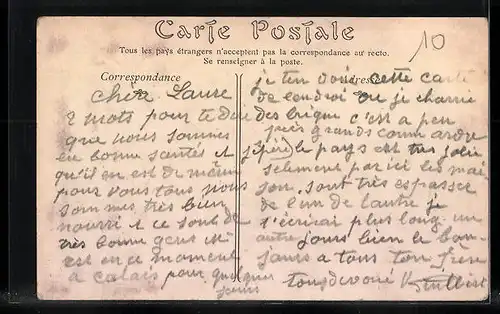 Carte Postale
10
Tous les pays étrangers n'acceptent pas la correspondance au recto.
Se renseigner à la poste.
Correspondance
Adresse
Chère Laure
2 mots pour te dire
que nous sommes
en bonne santés et
qu'il en est de même
pour vous tous nous
sommes très bien
nourri et ce sont de
très bonne gens
est en ce moment
a calais pour quelques
jours
je ten voie cette carte
de lendroi ou je charrie
des brique c'est a peu
près grands comme ardre
le pays est très jolie
selement par ici les mai
son sont très espasser
de l'un de lautre je
t'écrirai plus long un
autre jours bien le bon
jours a tous ton frère
tous devoué